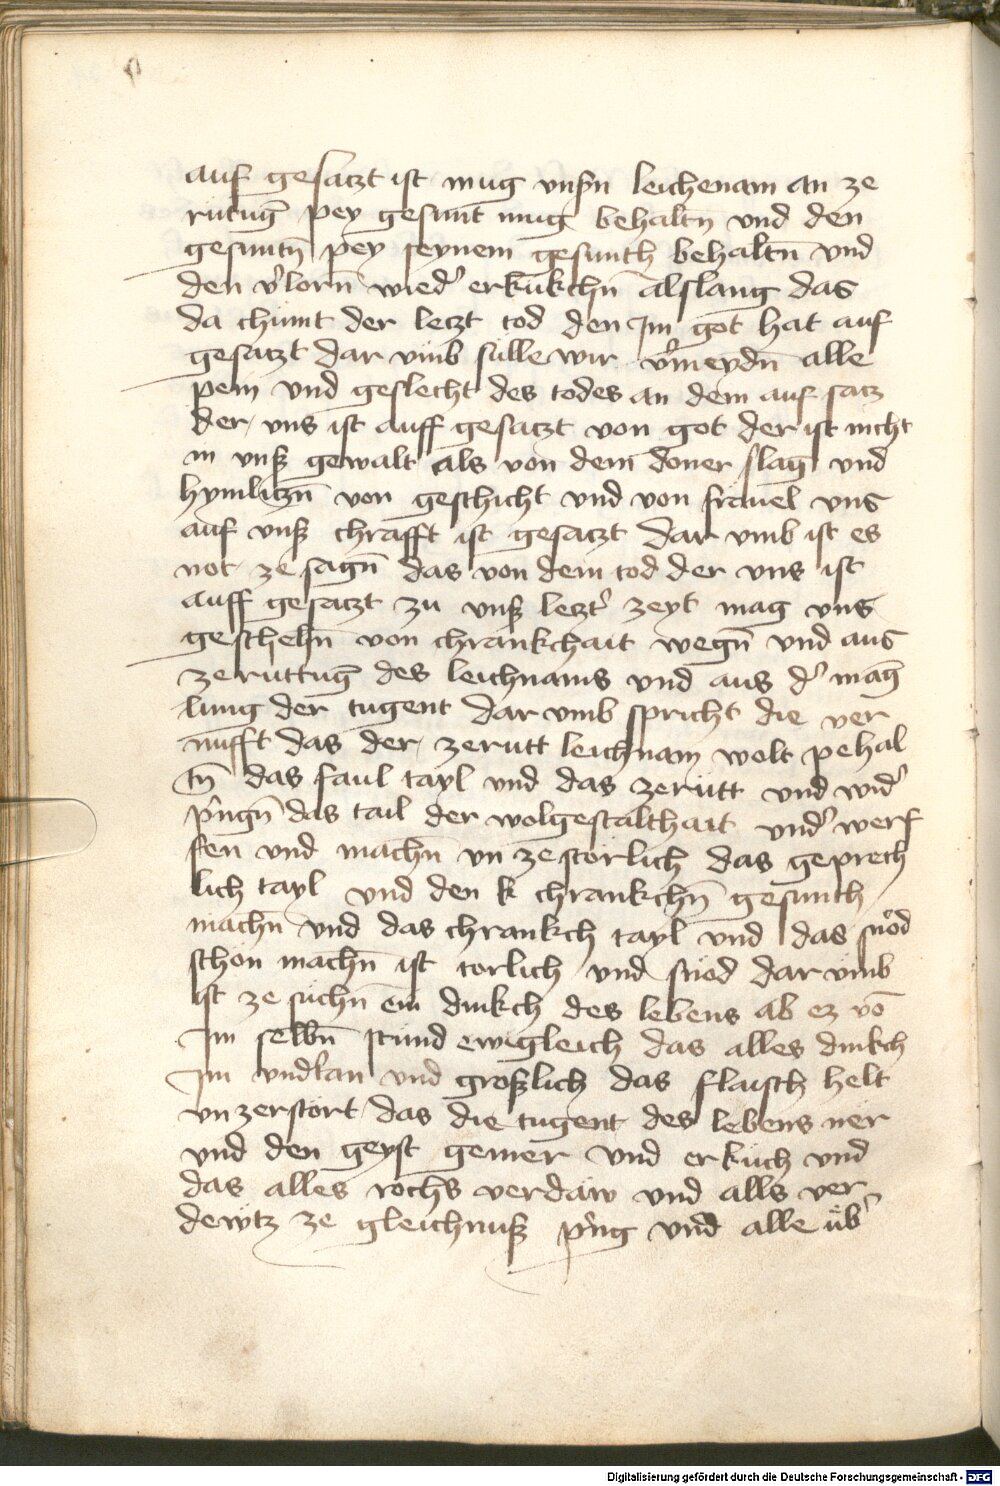 auf gesatzt ist mug vnsˀn leichenam an ze
ruttūg pey gesunt mug behaltn̄ vnd den
gesuntn̄ pey seynem gesunth behaltn̄ vnd
den vˀlorn̄ wiedˀ erkukchn̄ alslang das
da chumt der letzt tod den Im got hat auf
gesatzt dar vmb sulle wir vˀmeydn̄ alle
pein vnd geslecht des todes an dem auf satz
der vns ist auff gesatzt von got der ist nicht
in vnsˀ gewalt als von dem doner slag vnd
hymlitzn̄ von geschicht vnd von freuel vns
auf vnsˀ chrafft ist gesatzt dar vmb ist es
not ze sagn̄ das von dem tod der vns ist
auff gesatzt zu vnsˀ letztˀ zeyt mag vns
geschehn̄ von chrankchait wegn̄ vnd aus
zeruttūg des leichnams vnd aus dˀ māg
lung der tugent dar vmb spricht die ver
nufft das der zerutt leichnam wolt pehal
tn̄ das faul tayl vnd das zerutt vnd widˀ
pˀngn̄ das tail der wolgestalthait vndˀ werf
fen vnd machn̄ vn zestorlich das geprech
lich tayl vnd den k chrankchn̄ gesunth
machn̄ vnd das chrankch tayl vnd das snöd
schon machn̄ ist torlich vnd snod dar vmb
ist ze suchn̄ ein dinkch des lebens ab ez vō
Im selbn̄ stund ewigleich das alles dinkch
Im vndˀtan vnd groslich das flaisch helt
vn zerstort das die tugent des lebens ner
vnd den geyst gemer vnd erkuch vnd
das alles rochs verdaw vnd alls ver
dewtz ze gleichnusˀ pˀng vnd alle übˀ
Digitalisierung gefördert durch die Deutsche Forschungsgemeinschaft - DFG